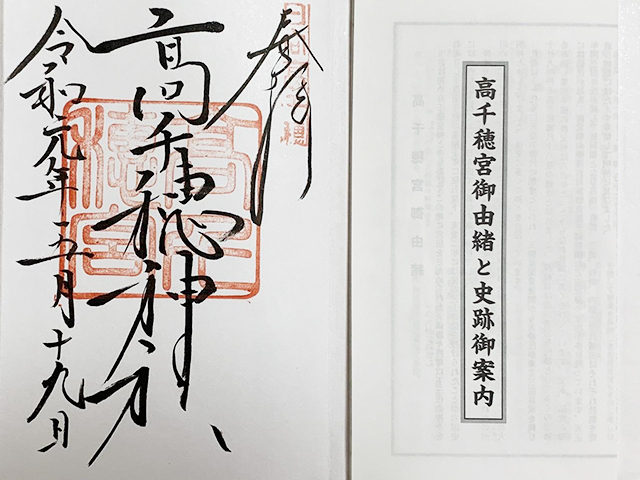 高千穂宮御由緒と史跡御案内
奉拝
高千穂神社
令和元年五月十九日